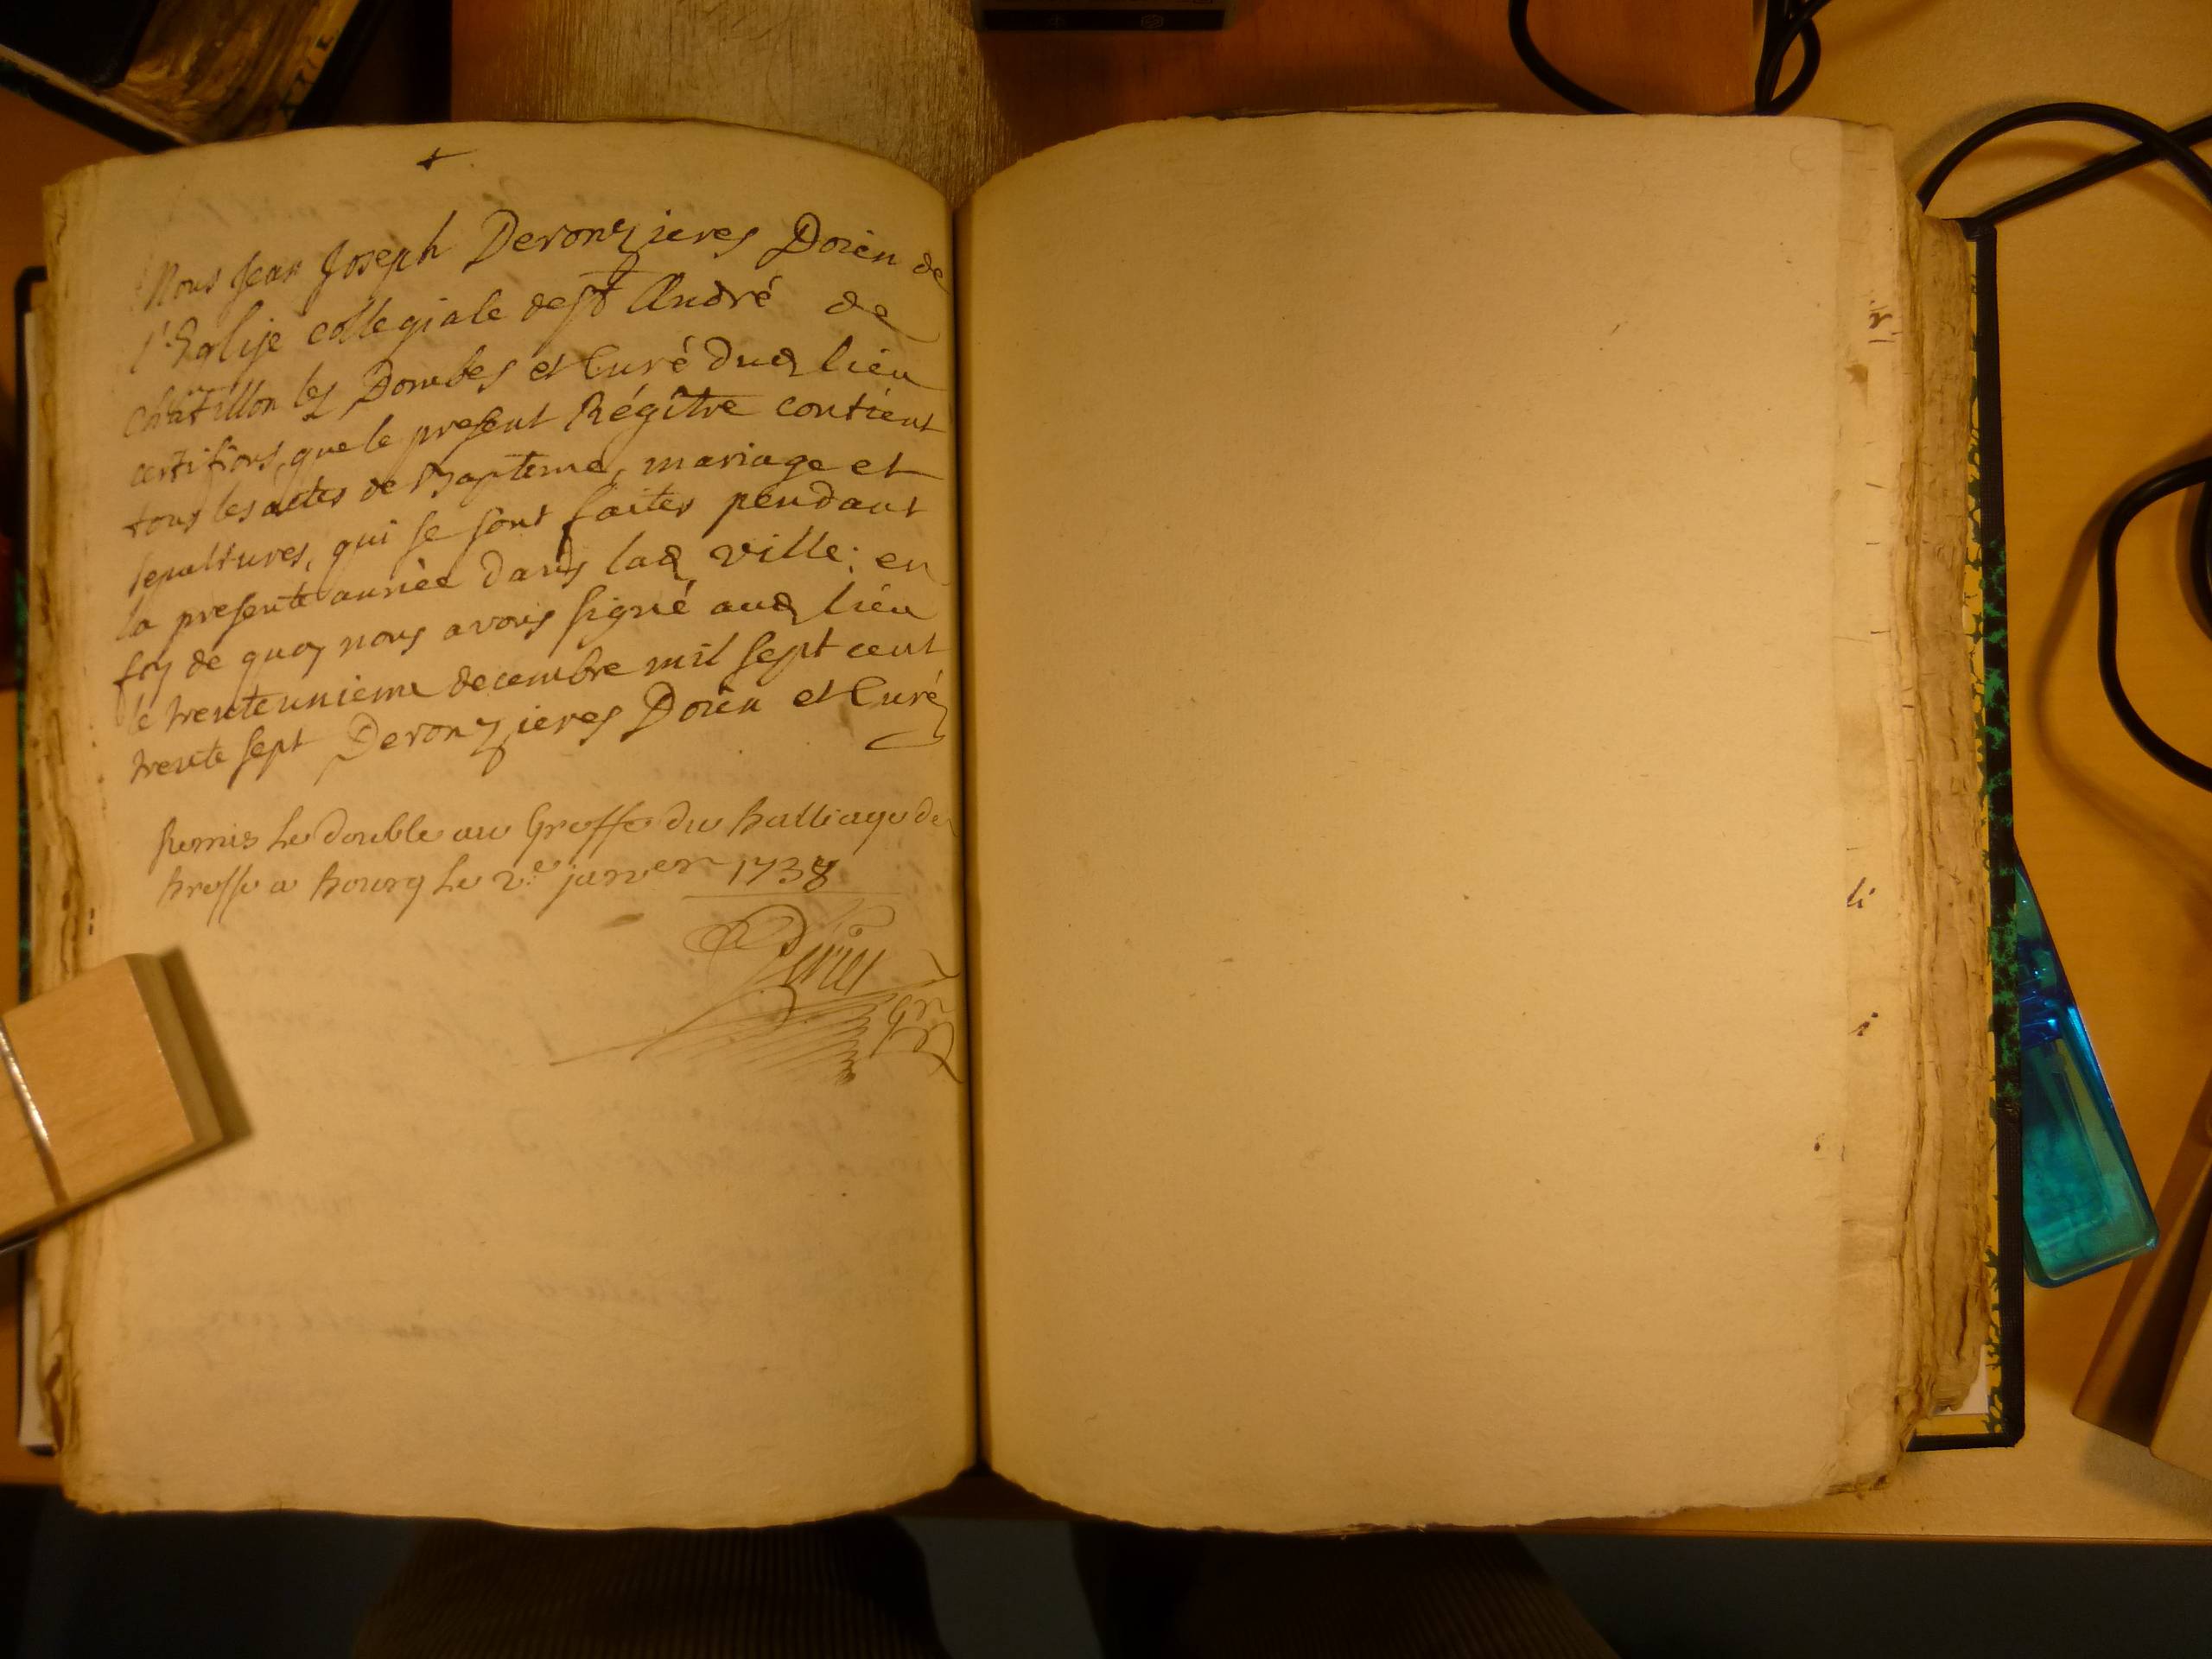 Nous Jean Joseph Deronzieres Doïen de
l'Eglise collegiale de st André de
châtillon les Dombes et Curé dud lieu
certifions que le present Régître contient
tous les actes de Baptême, mariage et
sepultures, qui se sont faites pendant
la presente année dans lad ville: en
foy de quoy nous avons signé aud lieu
le trente unieme decembre mil sept cent
trente sept Deronzieres Doïen et Curé
Remis le double au Greffe du balliage de
bresse a bourg le 2.e janver 1738